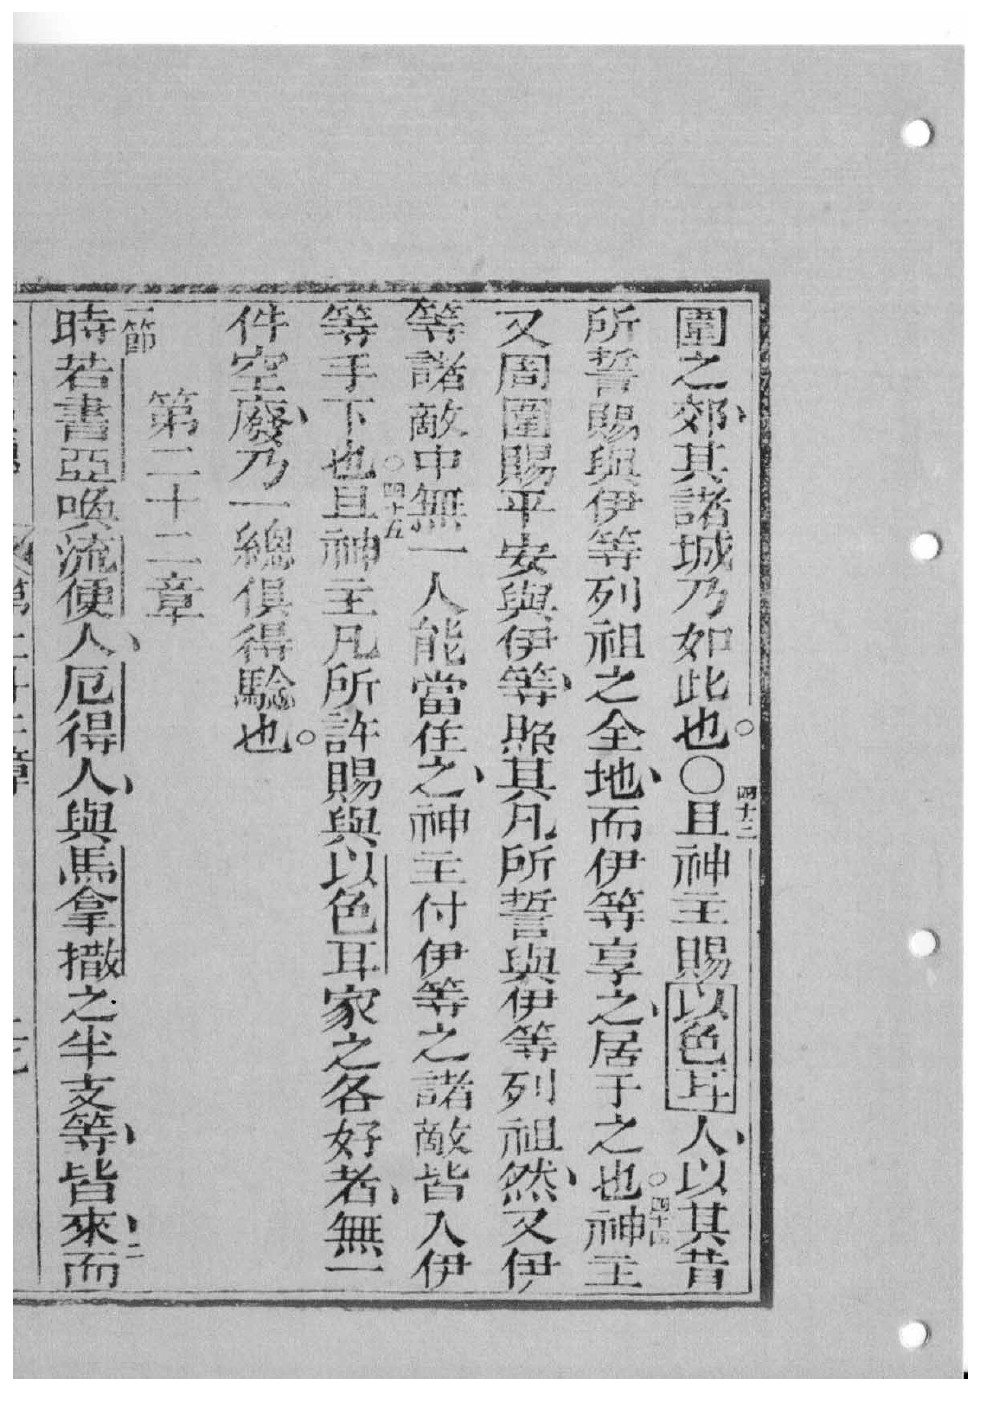 圍之郊、其諸城乃如此也。〇四十三且神主賜以色耳人、以其昔
所誓賜與伊等列祖之全地、而伊等享之、居于之也。四十四神主
又周圍賜平安與伊等、照其凡所誓與伊等列祖然、又伊
等諸敵中無一人能當住之、神主付伊等之諸敵皆入伊
等手下也。四十五且神主凡所許賜與以色耳家之各好者、無一
件空廢、乃一總俱得驗也。
第二十二章
一節時若書亞喚流便人、厄得人、與馬拿撒之半支等、皆來、二而
第二十二章